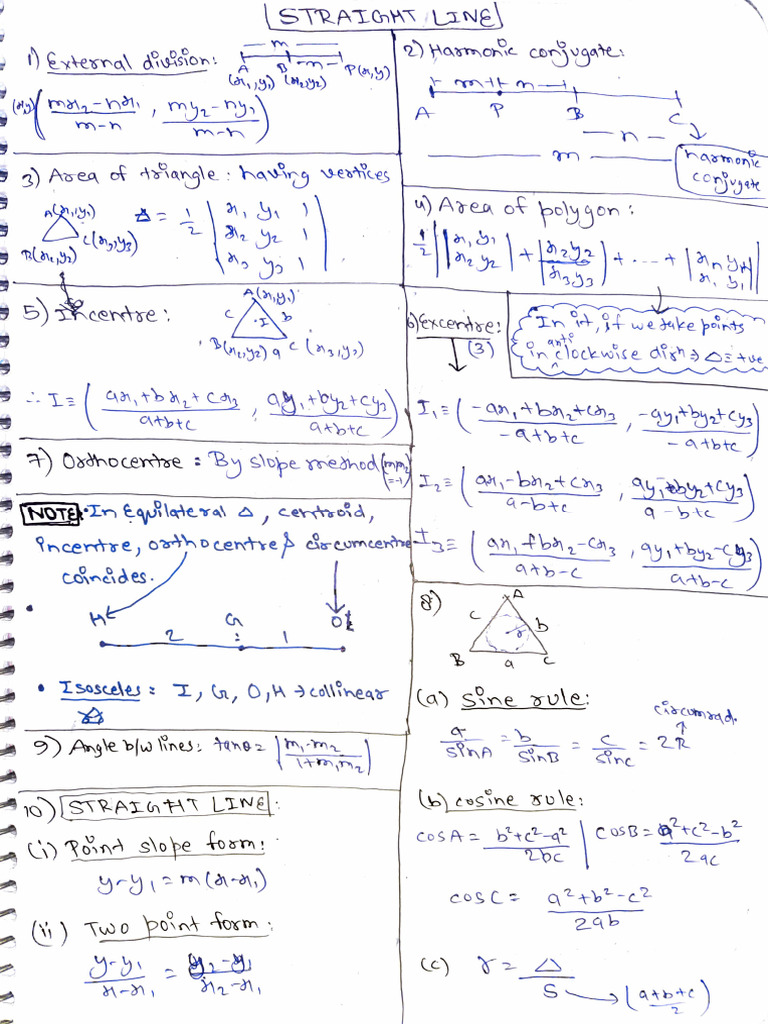 STRAIGHT LINE
1) External division:
m
n
A B P(x,y)
(x₁,y₁) (x₂,y₂)
(x,y) ( (mx₂-nx₁)/(m-n) , (my₂-ny₁)/(m-n) )
2) Harmonic conjugate:
m n
A P B C
n
m
harmonic
conjugate
3) Area of triangle: having vertices
A(x₁,y₁)
B(x₂,y₂) C(x₃,y₃)
Δ = 1/2 | x₁ y₁ 1 |
| x₂ y₂ 1 |
| x₃ y₃ 1 |
4) Area of polygon:
1/2 | |x₁ y₁; x₂ y₂| + |x₂ y₂; x₃ y₃| + ---- + |xₙ yₙ; x₁ y₁| |
In it, if we take points
in anticlockwise dirn ⇒ Δ = +ve
5) Incentre:
A(x₁,y₁)
c b
I
B(x₂,y₂) a C(x₃,y₃)
∴ I ≡ ( (ax₁+bx₂+cx₃)/(a+b+c) , (ay₁+by₂+cy₃)/(a+b+c) )
6) Excentre:
(3)
I₁ ≡ ( (-ax₁+bx₂+cx₃)/(-a+b+c) , (-ay₁+by₂+cy₃)/(-a+b+c) )
I₂ ≡ ( (ax₁-bx₂+cx₃)/(a-b+c) , (ay₁-by₂+cy₃)/(a-b+c) )
I₃ ≡ ( (ax₁+bx₂-cx₃)/(a+b-c) , (ay₁+by₂-cy₃)/(a+b-c) )
7) Orthocentre = By slope method (m₁m₂ = -1)
NOTE: In Equilateral Δ, centroid,
incentre, orthocentre & circumcentre
coincides.
H G O
2 : 1
• Isosceles: I, G, O, H → collinear
Δ
8)
A
c b
r
B a C
(a) Sine rule:
circumrad.
a/sinA = b/sinB = c/sinC = 2R
(b) cosine rule:
cosA = (b²+c²-a²)/2bc | cosB = (a²+c²-b²)/2ac
cosC = (a²+b²-c²)/2ab
(c) r = Δ/S → (a+b+c)/2
9) Angle b/w lines: tanθ = | (m₁-m₂)/(1+m₁m₂) |
10) STRAIGHT LINE:
(i) Point slope form:
y-y₁ = m(x-x₁)
(ii) Two point form:
(y-y₁)/(x-x₁) = (y₂-y₁)/(x₂-x₁)